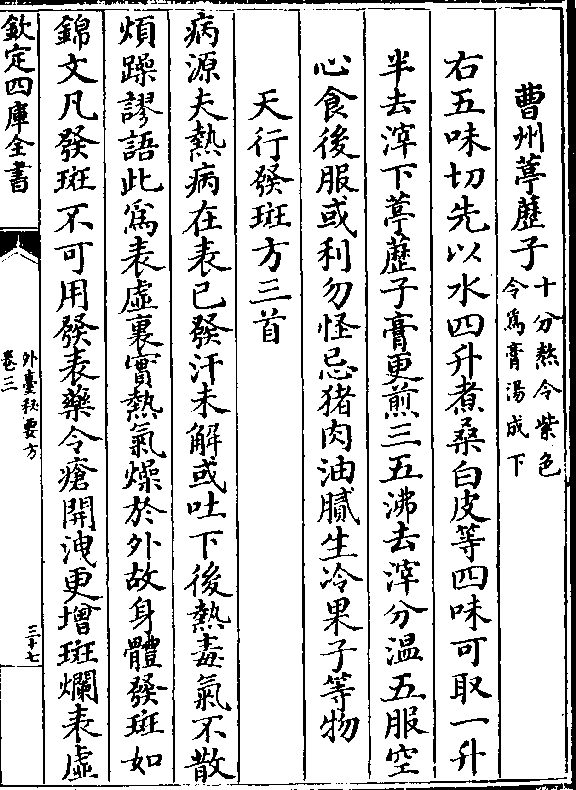 曹州葶藶子十分熬令紫色
令爲膏湯成下
右五味切先以水四升煮桑白皮等四味可取一升
半去滓下葶藶子膏更煎三五沸去滓分温五服空
心食後服或利勿怪忌猪肉油膩生冷果子等物
天行發斑方三首
病源夫熱病在表已發汗未解或吐下後熱毒氣不散
煩躁謬語此爲表虚裏實熱氣燥於外故身體發斑如
錦文凡發斑不可用發表藥令瘡開洩更增斑爛表虚
欽定四庫全書
外臺秘要方
卷三
三十七